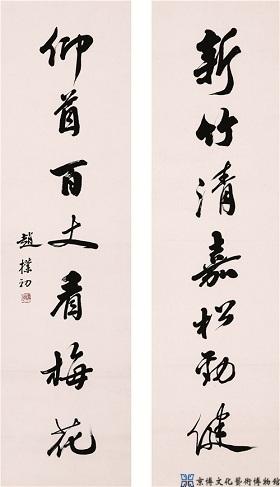 新竹清嘉松勁健
仰首百丈看梅花
趙樸初
京博文化藝術博物館